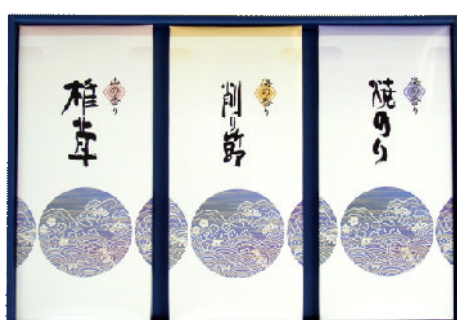 山の香り
椎茸
海の香り
削り節
海の香り
焼のり